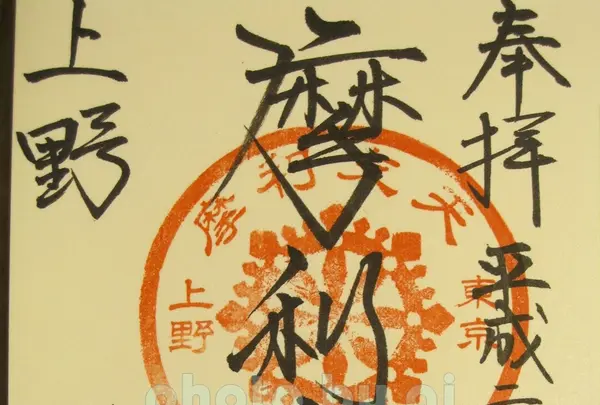 奉拝 平成
摩利
上野
摩利支天
東京
上野
photo by